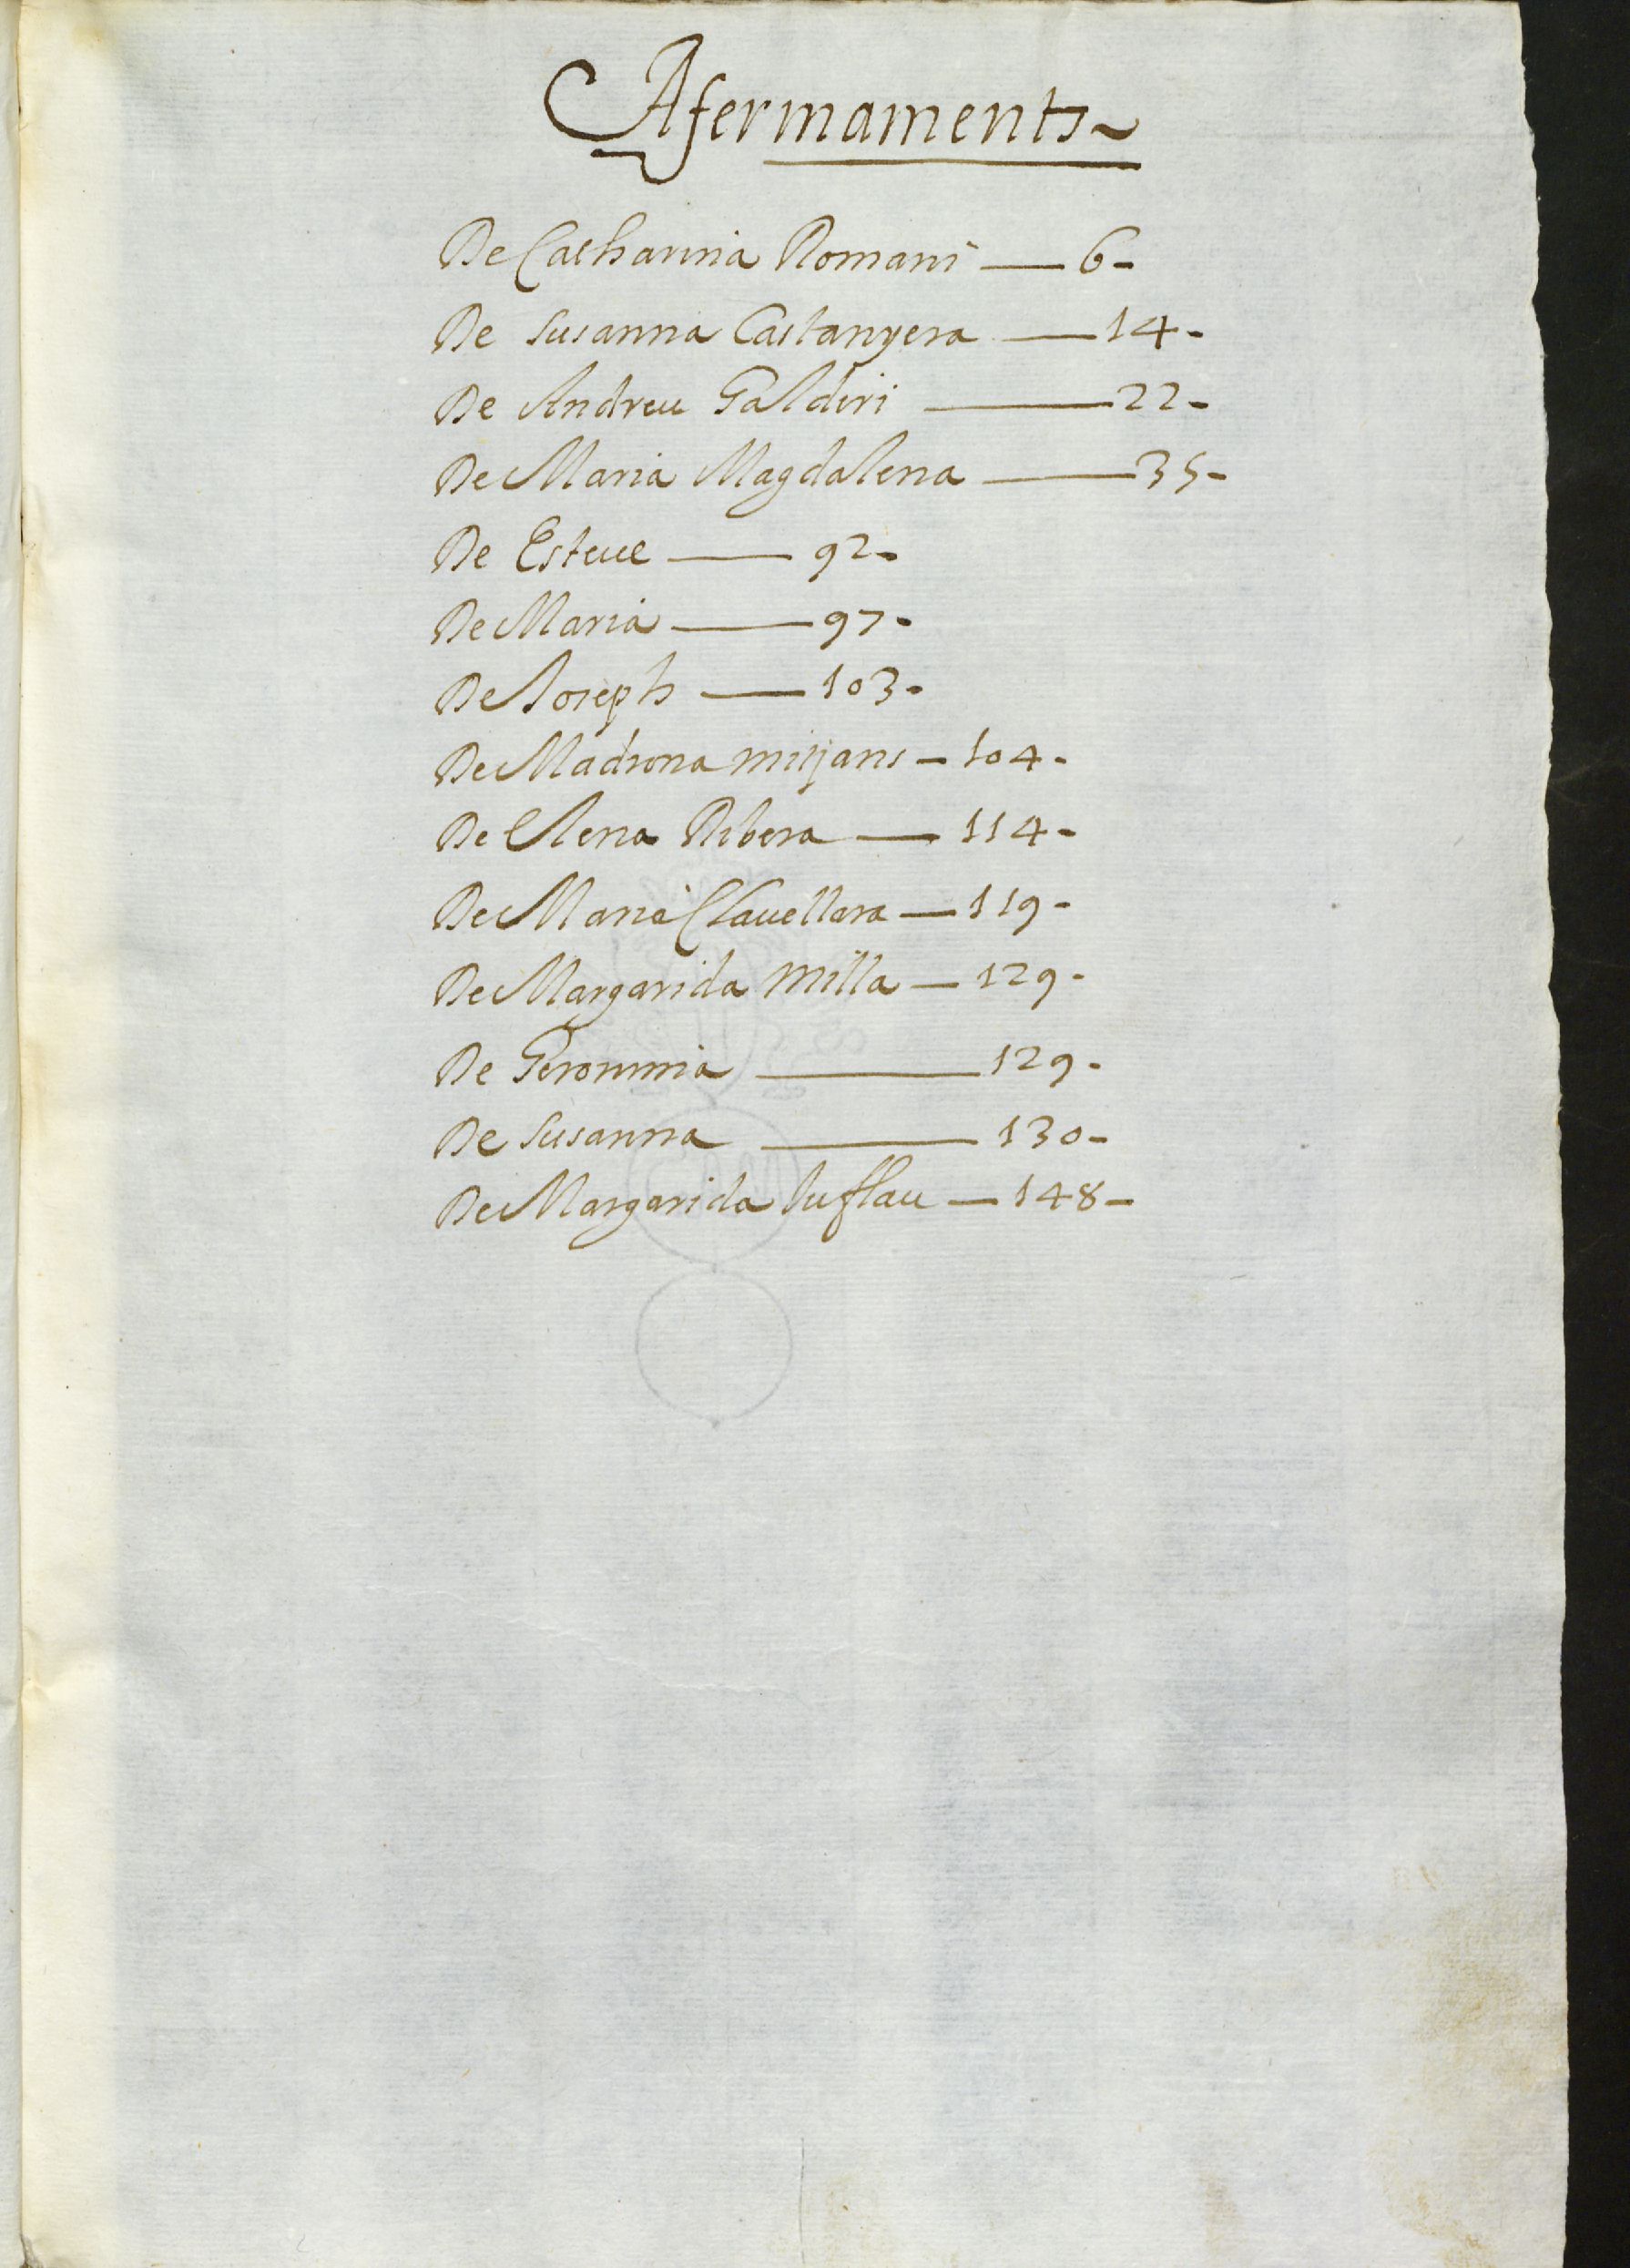 Afermaments
De Catharina Romani — 6-
De Susanna Castanyera — 14-
De Andreu Galdiri — 22-
De Maria Magdalena — 35-
De Esteue — 92-
De Maria — 97-
De Joseph — 103-
De Madrona mitjans — 104-
De Elena Ribera — 114-
De Maria Clauellara — 119-
De Margarida Milla — 129-
De Geronima — 129-
De Susanna — 130-
De Margarida — 148-